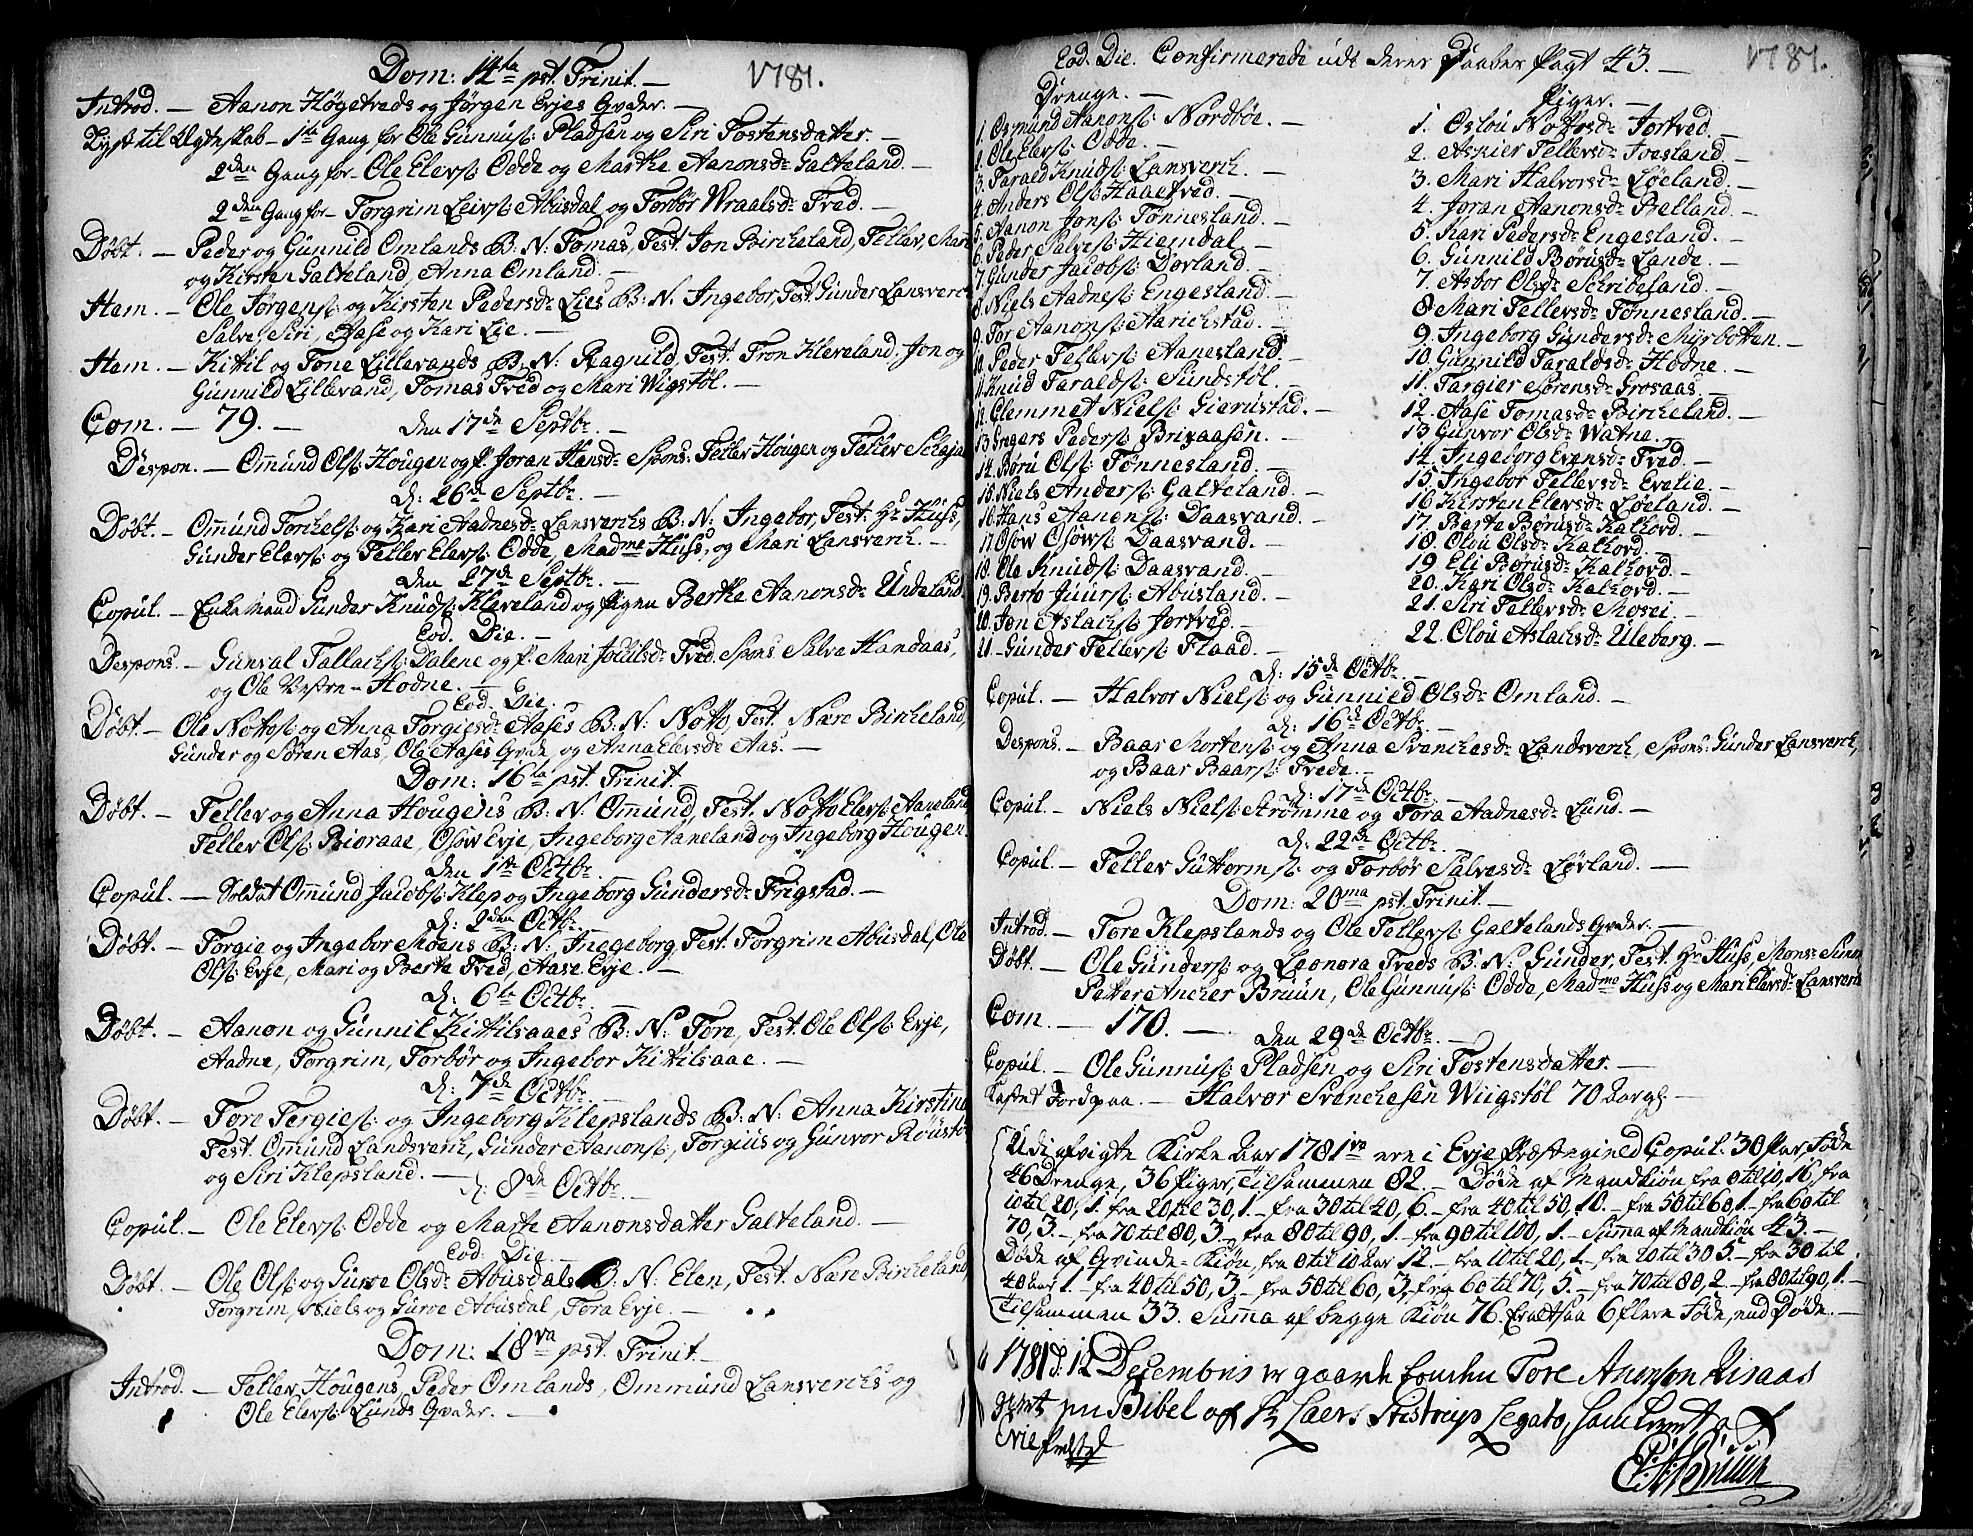 Dom: 14ta pst. Trinit. — 1781.
Introd. — Aanon Høgetveds og Jørgen Evjes Qvder. —
Lyst til Ægteskab — 1te Gang for Ole Gunnufs: Pladsen og Siri Tostensdatter. —
2den Gang for Ole Elevs: Odde og Marthe Aanonsdr Galteland. —
2den Gang for Torgrim Leivs: Abusdal og Torbør Wraalsdr Tved. —
Døbt. — Peder og Gunnild Omlands B: N. Tomas, Test. Jon Bircheland, Tellev, Mari
og Kirsten Galteland, Anna Omland. —
Hem. — Ole Jørgens: og Kirsten Pedersdr Lies B: N. Ingebor, Test. Gunder Lansverch
Salve, Siri, Aase og Kari Lie. —
Hem. — Kittil og Tone Lillevands B: N: Ragnild, Test. Tron Kleveland, Jon og
Gunnild Lillevand, Tomas Tved og Mari Wigstøl. —
Com. — 79. — den 17de Septbr. —
Despon. — Omund Ols: Hougen og p. Joran Hansdr Spons: Tellev Hougen og Tellev
d: 26de Septbr. —
Døbt. — Omund Torchels: og Kari Aadnesdr Lansverchs B: N: Ingebor, Test: Hr Huss,
Gunder Elevs: og Tellev Elevs: Odde, Madme Huss, og Mari Lansverch. —
den 27de Septbr. —
Copul. — Enke Mand Gunder Knuds: Kleveland og Pigen Berthe Aanonsdr Undeland.
Eod. Die. —
Despons. — Gunval Tallachs: Dalene og p. Mari Joculsdr Tved. Spons Salve Handaas,
og Ole Vestre-Hodne. —
Eod. Die.
Døbt. — Ole Nottos: og Anna Torgiesdr Aases B: N: Notto, Test. Nære Bircheland,
Gunder og Søren Aas, Ole Aases Qvde og Anna Elevsdr Aas. —
Dom: 16ta pst. Trinit.
Døbt. — Tellev og Anna Hougens B: N: Omund, Test. Notto Elevs: Aaneland
Tellev Ols: Bioraae, Osow Evje, Ingeborg Aaneland og Ingeborg Hougen.
den 1te Octbr. —
Copul. — Soldat Omund Jacobs: Klep og Ingeborg Gundersdr Frigstad. —
d: 2den Octbr.
Døbt. — Torgie og Ingebor Moens B: N: Ingeborg, Test. Torgrim Abusdal, Ole
Ols: Evje, Mari og Berte Tved, Aase Evje. —
d: 6te Octbr. —
Døbt. — Aanon og Gunnil Kittilsaaes B: N: Tore, Test. Ole Ols: Evje,
Aadne, Torgrim, Torbør og Ingebor Kittilsaae. —
d: 7de Octbr. —
Døbt. — Tore Tergies: og Ingeborg Klepslands B: N: Anna Kirstine
Test. Omund Landsverch, Gunder Aanons:, Torgius og Gunvor
og Siri Klepsland. —
d: 8de Octbr. —
Copul. — Ole Elevs: Odde og Marte Aanonsdatter Galteland. —
Eod: Die. —
Døbt. — Ole Ols: og Gurve Olsdr Abusdals B: N: Elen, Test. Nære Bircheland
Torgrim, Niels og Gurve Abusdal, Tora Evje. —
Dom: 18va pst. Trinit. —
Introd. — Tellev Hougens, Peder Omlands, Ommund Lansverchs og
Ole Elevs: Lunds Qvder. —
Eod. Die. Confirmerede udi deres Daabes Pagt 43. — 1781.
Drenge. —
1. Osmund Aanons: Nordbøe. —
2. Ole Elevs: Odde. —
3. Tarald Knuds: Lansverch. —
4. Anders Ols: Haaetved. —
5. Aanon Jons: Tønnesland. —
6. Peder Salves: Hiemdal —
7. Gunder Jacobs: Dovland. —
8. Niels Aadnes: Engesland. —
9. Tor Aanons: Aarichstad. —
10. Peder Tellevs: Aanesland. —
11. Knud Taralds: Sundstøl. —
12. Clemmet Niels: Gierustad. —
13. Gregers Peders: Brixaasen. —
14. Børu Ols: Tønnesland. —
15. Niels Anders: Galteland. —
16. Hans Aanons: Daasvand. —
17. Osow Osows: Daasvand. —
18. Ole Knuds: Daasvand. —
19. Berto Juurs: Abusland. —
20. Jon Aslachs: Jortved. —
21. Gunder Tellevs: Flaad. —
Piger. —
1. Oslou Nottosdr Jortved. —
2. Aspier Tellevsdr Joesland. —
3. Mari Halvorsdr Løeland. —
4. Joran Aanonsdr Belland. —
5. Kari Pedersdr Engesland. —
6. Gunnild Børusdr Lande. —
7. Asbor Olsdr Schribeland. —
8. Mari Tellevsdr Tønnesland. —
9. Ingeborg Gundersdr Myrbotten. —
10. Gunnild Taraldsdr Hodne. —
11. Targier Sørensdr Grosaas. —
12. Aase Tomasdr Bircheland. —
13. Gunvor Olsdr Watne. —
14. Ingeborg Evensdr Tved. —
15. Ingebor Tellevsdr Evelie. —
16. Kirsten Elevsdr Løeland. —
17. Berte Børusdr Kalhovd. —
18. Olou Olsdr Kalhovd. —
19. Eli Børusdr Kalhovd. —
20. Kari Olsdr Kalhovd. —
21. Siri Tellevsdr Mosei —
22. Olou Aslachsdr Uleberg. —
d: 15de Octbr. —
Copul. — Halvor Niels: og Gunnild Olsdr Omland. —
d: 16de Octbr. —
Despons. — Baar Mortens: og Anna Svenchesdr Landsverch, Spons: Gunder Lansverch,
og Baar Baars: Tvede. —
d: 17de Octbr. —
Copul. — Niels Niels: Strømme og Tora Aadnesdr Lund. —
d: 22de Octbr. —
Copul. — Tellev Guttorms: og Torbør Salvesdr Løvland. —
Dom: 20ma pst. Trinit. —
Introd. — Tore Klepslands og Ole Tellevs: Galtelands Qvder. —
Døbt. — Ole Gunders: og Leonora Tveds B: N: Gunder, Test. Hr Huss, Mons:
Petter Ancher Bruun, Ole Gunnufs: Odde, Madme Huss og Mari Elevsdr Lansverch
Com. — 170. —
den 29de Octbr. —
Copul. — Ole Gunnufs: Pladsen og Siri Tostensdatter. —
Kastet Jord paa. — Halvor Svenchesen Wiigstøl 70 Aar gl: —
Udi afvigte Kirke Aar 1781 ere i Evje Præstegield Copul. 30 Par, Fødte
46 Drenge, 36 Piger, Tilsammen 82. — Døde af Mandkiøn fra 0 til 10, 16, fra
10 til 20, 1. fra 20 til 30, 1. — fra 30 til 40, 6. — fra 40 til 50, 10. — fra 50 til 60, 1. — fra 60 til
70, 3. — fra 70 til 80, 3. — fra 80 til 90, 1. — fra 90 til 100, 1. — Summa af Mandkiøn 43. —
Døde af Qvinde-Kiøn, fra 0 til 10 Aar 12. — fra 10 til 20, 1. — fra 20 til 30 5. — fra 30 til
40 Aar 1. — fra 40 til 50, 3. — fra 50 til 60, 3. — fra 60 til 70, 5. — fra 70 til 80, 2. — fra 80 til 90, 1. —
Tilsammen 33. Summa af begge Kiøn 76. Er altsaa 6 flere Fødte, end Døde. —
1781 d. 12 Decembris er Tore
Bibel af Laers Stistrup Legato,
Evje